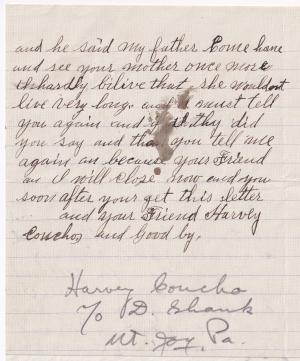 and he said my father Come hane
and see your mother once more
I hardly bilive that she wouldont
live very long. and I must tell
you again and why did
you say and that you tell me
again an because your Friend
an I will close now and you
soon after your get this letter
and your Friend Harvey
Couchos and Good by.
Harvey Coucho
c/o D. Shank
Mt. Joy, Pa.